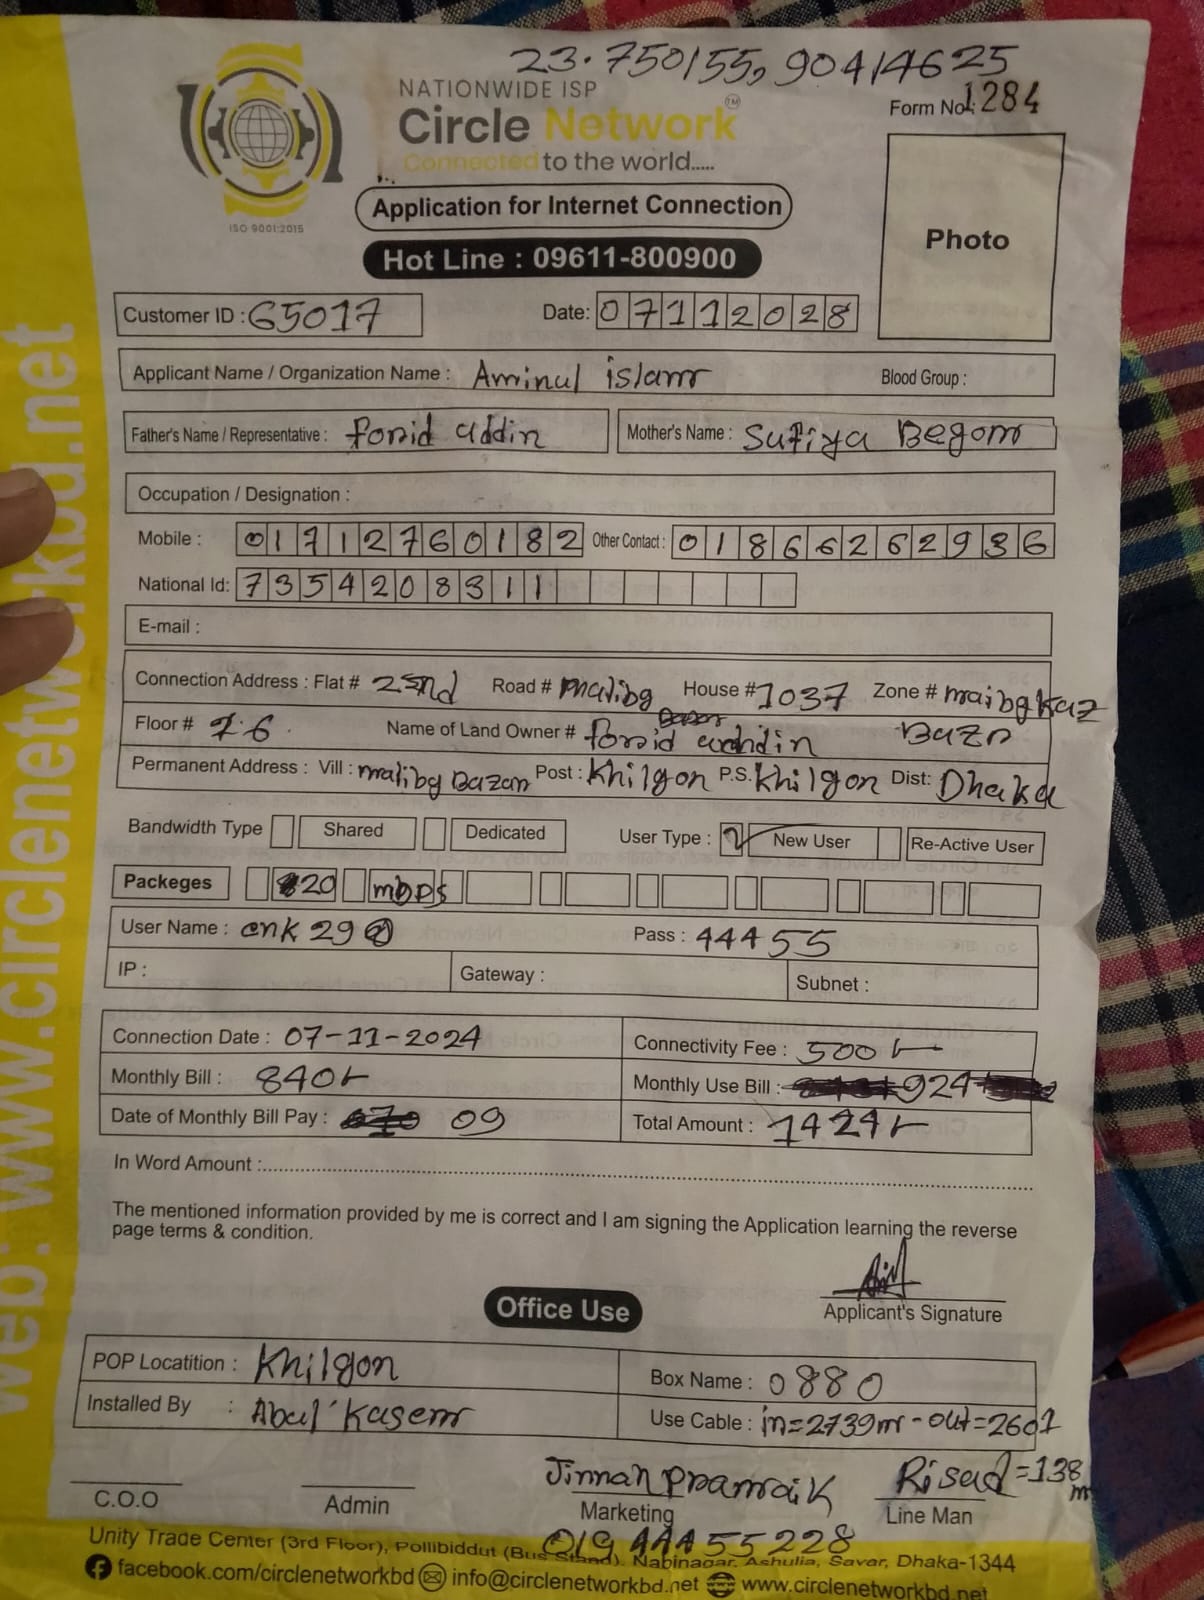 23.750155, 90414625
NATIONWIDE ISP
Circle Network TM
Connected to the world.....
Form No: 1284
ISO 9001:2015
Application for Internet Connection
Photo
Hot Line : 09611-800900
Customer ID : 65017 Date: 07112028
Applicant Name / Organization Name : Aminul islam Blood Group :
Father's Name / Representative : forid uddin Mother's Name : Sufiya Begom
Occupation / Designation :
Mobile : 01712760182 Other Contact : 01866262936
National Id: 7354208311
E-mail :
Connection Address : Flat # 2nd Road # malibg House # 1037 Zone # maibg
Floor # 6 Name of Land Owner # forid Bazr
Permanent Address : Vill : malibg Bazar Post : Khilgon P.S. Khilgon Dist: Dhaka
Bandwidth Type Shared Dedicated User Type : New User Re-Active User
Packeges 20 mbps
User Name : cnk 29 Pass : 44455
IP : Gateway : Subnet :
Connection Date : 07-11-2024 Connectivity Fee : 500/-
Monthly Bill : 840/- Monthly Use Bill : 924
Date of Monthly Bill Pay : 09 Total Amount : 1424/-
In Word Amount :
The mentioned information provided by me is correct and I am signing the Application learning the reverse
page terms & condition.
Applicant's Signature
Office Use
POP Locatition : Khilgon Box Name : 0880
Installed By : Abul Kasem Use Cable : in=2739m - out=2601
Jinnah Pramaik Risad =138m
C.O.O Admin Marketing Line Man
01944455228
Unity Trade Center (3rd Floor), Pollibiddut (Bus Stand), Nabinagar, Ashulia, Savar, Dhaka-1344
facebook.com/circlenetworkbd info@circlenetworkbd.net www.circlenetworkbd.net
web: www.circlenetworkbd.net